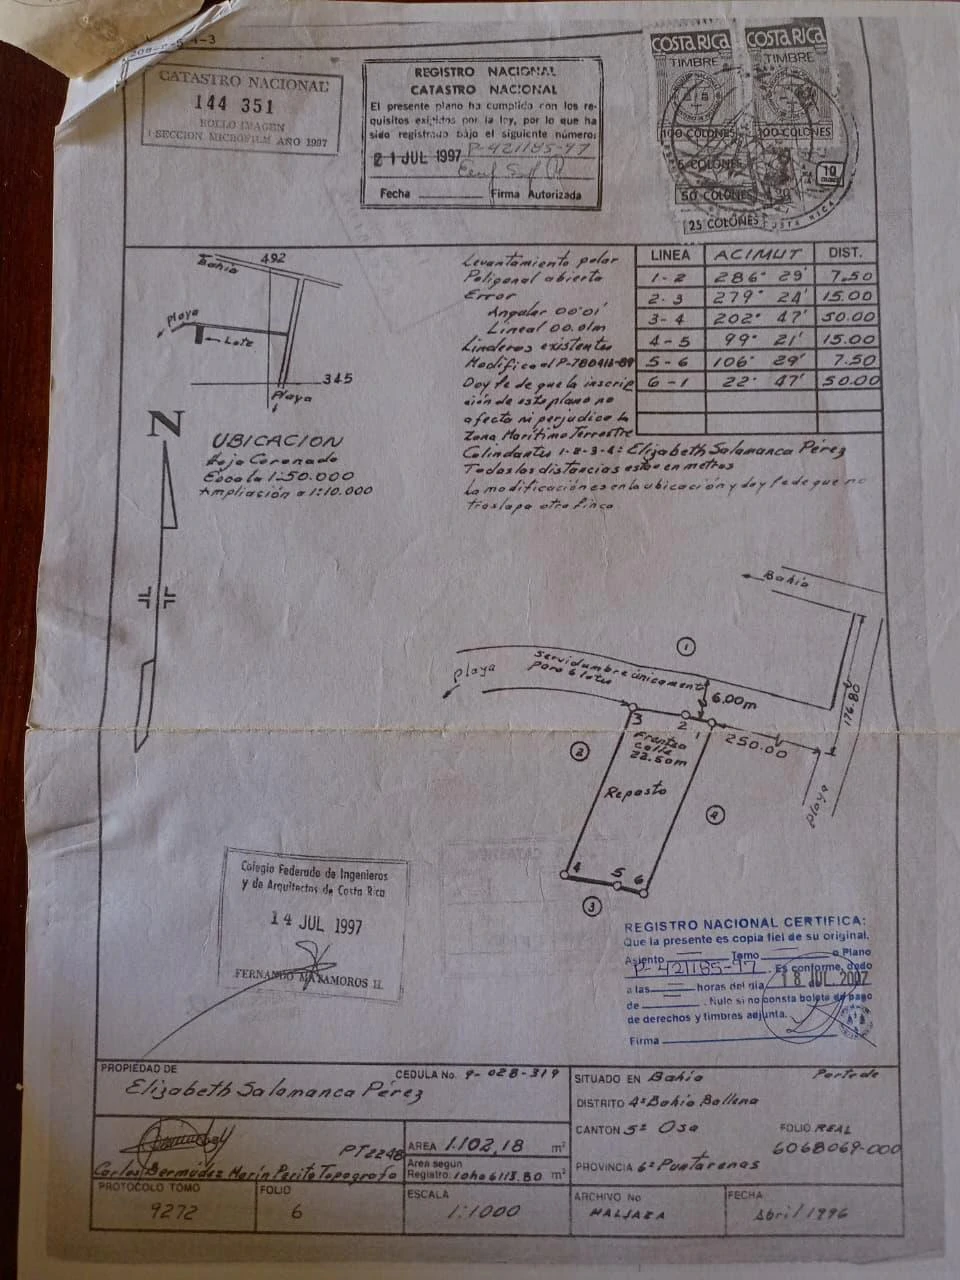 CATASTRO NACIONAL
144 351
ROLLO IMAGEN
SECCION MICROFILM AÑO 1997
REGISTRO NACIONAL
CATASTRO NACIONAL
El presente plano ha cumplido con los re-
quisitos exigidos por la ley, por lo que ha
sido registrado bajo el siguiente número:
21 JUL 1997 P-421185-97
Fecha Firma Autorizada
COSTA RICA COSTA RICA
TIMBRE TIMBRE
100 COLONES 100 COLONES
5 COLONES
10
50 COLONES
25 COLONES
COSTA RICA
Bahía
492
Playa
Lote
345
Playa
N
UBICACION
Hoja Coronado
Escala 1:50.000
Ampliación a 1:10.000
Levantamiento polar
Poligonal abierta
Error
Angular 00°01'
Lineal 00.01m
Linderos existentes
Modifica el
Doy fe de que la inscrip
ción de este plano no
afecta ni perjudica la
Zona Marítimo Terrestre
Colindantes 1-2-3-4: Elizabeth Salamanca Pérez
Todas las distancias estan en metros
La modificación es en la ubicación y doy fe de que no
traslapa otra finca
LINEA ACIMUT DIST.
1-2 286° 29' 7.50
2-3 279° 24' 15.00
3-4 202° 47' 50.00
4-5 99° 21' 15.00
5-6 106° 29' 7.50
6-1 22° 47' 50.00
Bahía
1
Servidumbre únicamente
para 6 lotes
Playa
6.00m
176.80
3 2 1
Frente a
calle
22.50m
250.00
2
Repasto
Playa
4
4 5 6
3
Colegio Federado de Ingenieros
y de Arquitectos de Costa Rica
14 JUL 1997
FERNANDO MATAMOROS H.
REGISTRO NACIONAL CERTIFICA:
Que la presente es copia fiel de su original.
Asiento Tomo o Plano
P-421185-97. Es conforme, dado
a las horas del día 18 JUL. 2007
de . Nulo si no consta boleta de pago
de derechos y timbres adjunta.
Firma
PROPIEDAD DE CEDULA No. 9-028-319
Elizabeth Salamanca Pérez
SITUADO EN Bahía
DISTRITO 4º Bahía Ballena
CANTON 5º Osa
PROVINCIA 6º Puntarenas
Parte de
FOLIO REAL
6068069-000
PT2248
Carlos Bermúdez Marín Perito Topógrafo
AREA 1.102,18 m²
Area según
Registro. 10ha 6113.80 m²
PROTOCOLO TOMO
9272
FOLIO
6
ESCALA
1:1000
ARCHIVO No
FECHA
Abril 1996